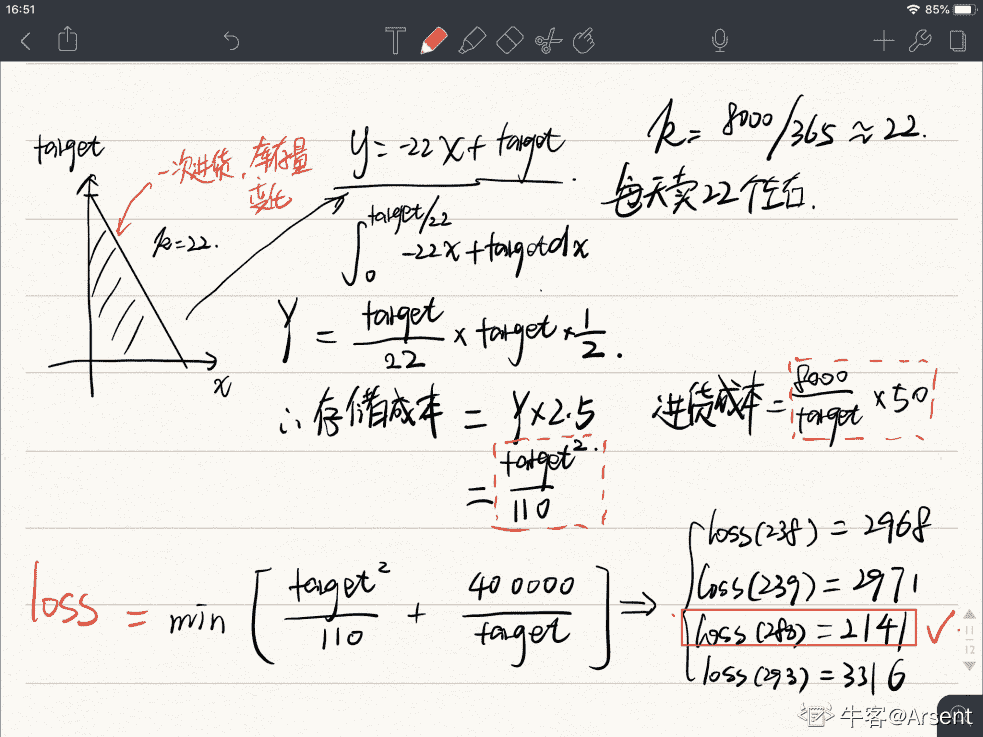 16:51
85%
T
target
一次进货，库存量变化
k=22.
x
Y = -22x + target
k = 8000/365 ≈ 22.
每天卖22个左右.
∫₀^(target/22) -22x + target dx
Y = target/22 × target × 1/2.
∴ 存储成本 = Y × 2.5
= target²/110
进货成本 = 8000/target × 50
loss = min [ target²/110 + 400000/target ] ⇒
loss(238) = 2968
loss(239) = 2971
loss(280) = 2141 ✓
loss(293) = 3316
11
12
牛客@Arsent